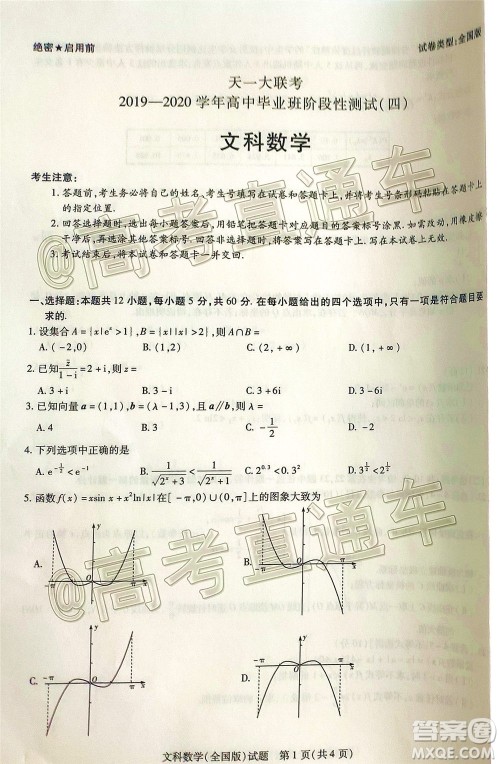 绝密★启用前
试卷类型:全国版
天一大联考
2019—2020学年高中毕业班阶段性测试(四)
文科数学
考生注意:
1. 答题前,考生务必将自己的姓名、考生号填写在试卷和答题卡上,并将考生号条形码粘贴在答题卡上的指定位置.
2. 回答选择题时,选出每小题答案后,用铅笔把答题卡对应题目的答案标号涂黑.如需改动,用橡皮擦干净后,再选涂其他答案标号.回答非选择题时,将答案写在答题卡上.写在本试卷上无效.
3. 考试结束后,将本试卷和答题卡一并交回.
一、选择题:本题共12小题,每小题5分,共60分.在每小题给出的四个选项中,只有一项是符合题目要求的.
1. 设集合A={x|eˣ>1},B={x||x|>2},则A∩B=
A. (-2,0) B. (1,2) C. (2,+∞) D. (1,+∞)
2. 已知z̄/(1-i)=2+i,则z=
A. 3+i B. 3-i C. -3+i D. -3-i
3. 已知向量a=(λ+1,2),b=(-1,3),若a∥b,则λ=
A. 4 B. 5
4. 下列选项中正确的是
C. 2^0.3<0.3²
5. 函数f(x)=xsin x+x²ln|x|在[-π,0)∪(0,π]上的图象大致为
A.
B.
C.
D.
y
-π
O
π
x
文科数学(全国版)试题 第1页(共4页)
@高考直通车
@高考直通车
答案圈
MXQE.COM